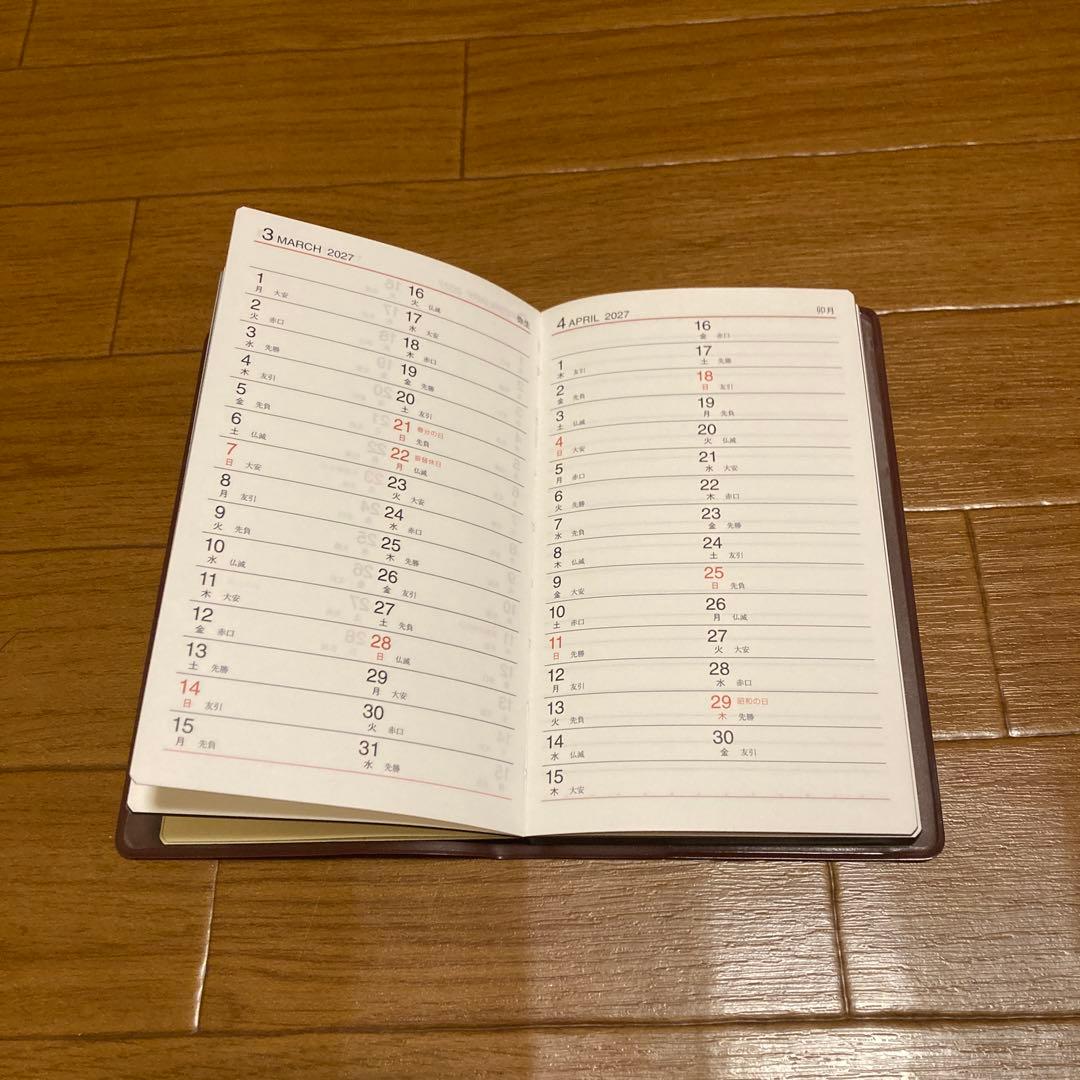 3 MARCH 2027
弥生
1
月 大安
2
火 赤口
3
水 先勝
4
木 友引
5
金 先負
6
土 仏滅
7
日 大安
8
月 友引
9
火 先負
10
水 仏滅
11
木 大安
12
金 赤口
13
土 先勝
14
日 友引
15
月 先負
16
火 仏滅
17
水 大安
18
木 赤口
19
金 先勝
20
土 友引
21 春分の日
日 先負
22 振替休日
月 仏滅
23
火 大安
24
水 赤口
25
木 先勝
26
金 友引
27
土 先負
28
日 仏滅
29
月 大安
30
火 赤口
31
水 先勝
4 APRIL 2027
卯月
1
木 友引
2
金 先負
3
土 仏滅
4
日 大安
5
月 赤口
6
火 先勝
7
水 先負
8
木 仏滅
9
金 大安
10
土 赤口
11
日 先勝
12
月 友引
13
火 先負
14
水 仏滅
15
木 大安
16
金 赤口
17
土 先勝
18
日 友引
19
月 先負
20
火 仏滅
21
水 大安
22
木 赤口
23
金 先勝
24
土 友引
25
日 先負
26
月 仏滅
27
火 大安
28
水 赤口
29 昭和の日
木 先勝
30
金 友引